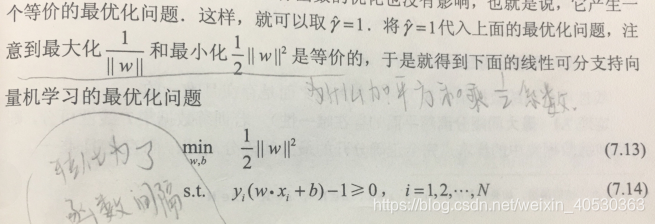 个等价的最优化问题．这样，就可以取 γ̂=1．将 γ̂=1代入上面的最优化问题，注
意到最大化 1/‖w‖ 和最小化 1/2‖w‖² 是等价的，于是就得到下面的线性可分支持向
为什么加平方和乘 1/2 系数
量机学习的最优化问题
min w,b 1/2‖w‖² (7.13)
转化为了
函数间隔
s.t. y_i(w·x_i+b)−1≥0， i=1,2,⋯,N (7.14)
https://blog.csdn.net/weixin_40530363